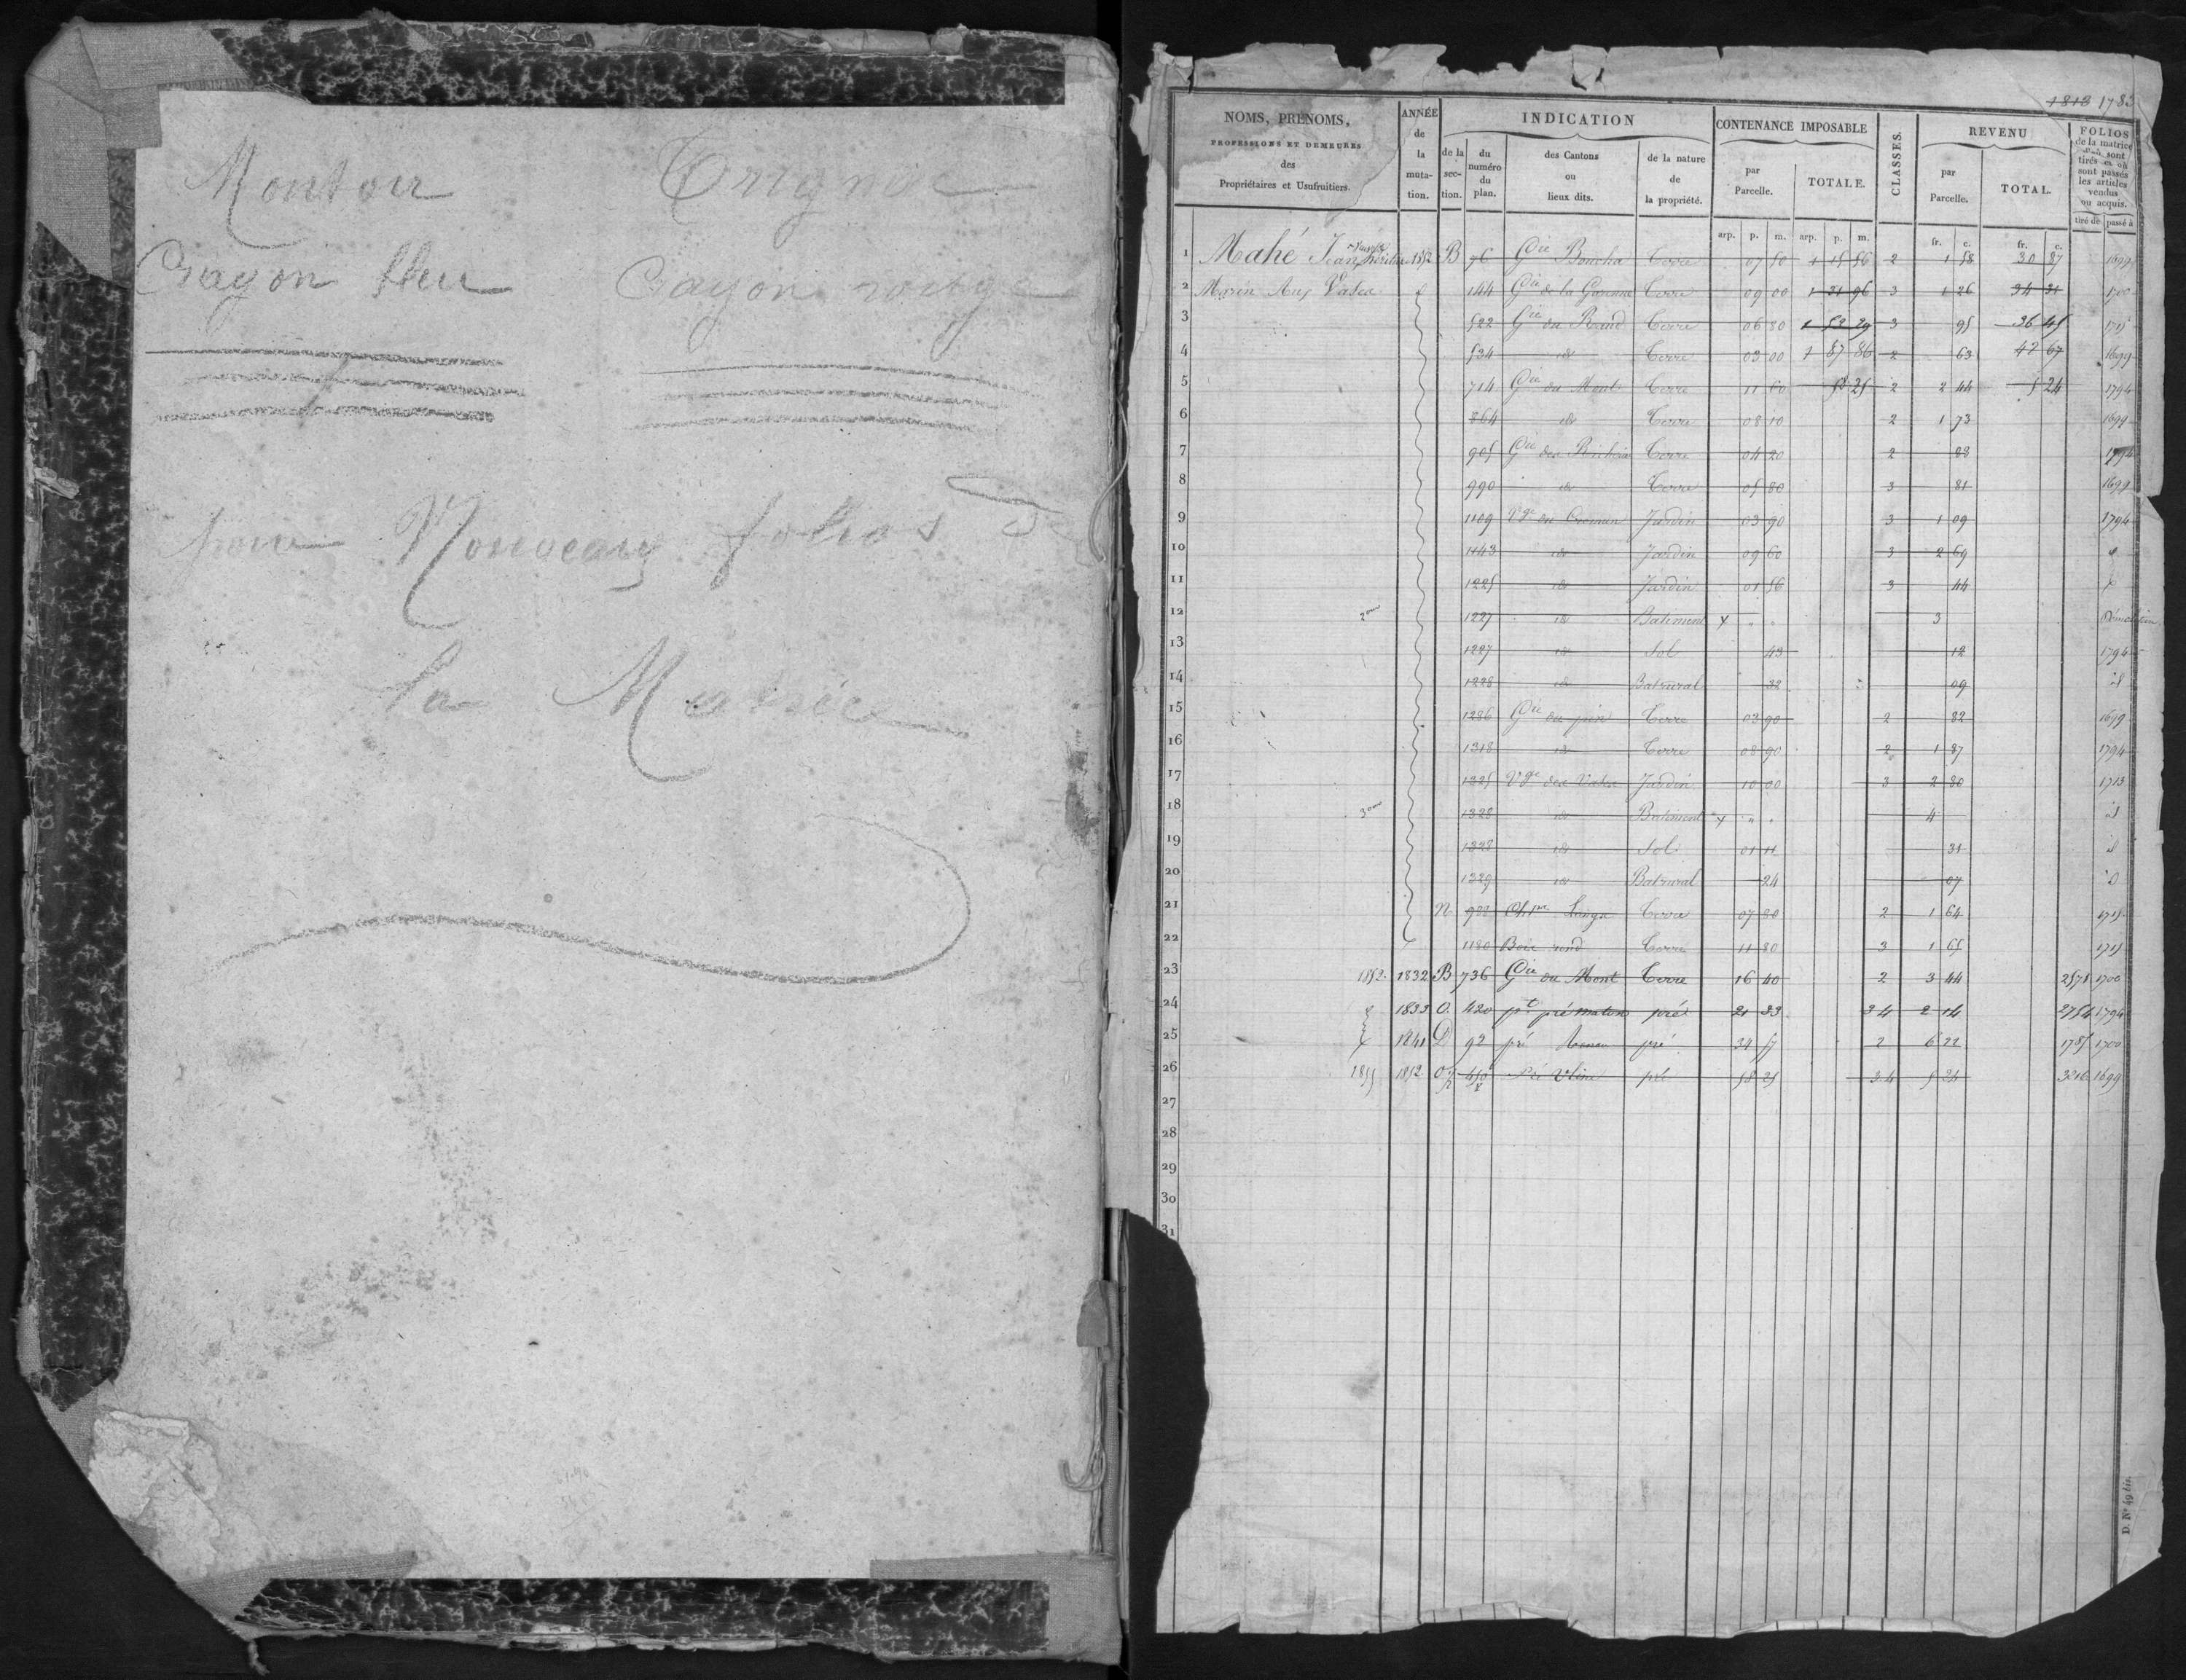 Montoir Trignac
Crayon bleu Crayon rouge
pour Nouveaux folios de
la Matrice
1818 1783
NOMS, PRÉNOMS,
PROFESSIONS ET DEMEURES
des
Propriétaires et Usufruitiers.
ANNÉE
de
la
muta-
tion.
INDICATION
de la
sec-
tion.
du
numéro
du
plan.
des Cantons
ou
lieux dits.
de la nature
de
la propriété.
CONTENANCE IMPOSABLE
par
Parcelle.
TOTALE.
CLASSES.
REVENU
par
Parcelle.
TOTAL.
FOLIOS
de la matrice
d'où sont
tirés et où
sont passés
les articles
vendus
ou acquis.
tiré de passé à
arp. p. m. arp. p. m. fr. c. fr. c.
1 Mahé Jean 1852 B 76 Gdie Boucha Terre 07 50 1 15 56 2 1 58 30 87 1699
2 Marin Aux 144 Gdie de la Garenne Terre 09 00 1 31 96 3 1 26 34 31 1700
3 522 Gdie du Rand Terre 06 80 1 53 29 3 95 36 45 1715
4 534 id Terre 03 00 1 87 86 2 63 42 67 1699
5 714 Gdie du Mont Terre 11 60 58 25 2 2 44 5 24 1794
6 864 id Terre 08 10 2 1 73 1699
7 905 Gdie des Terre 04 20 2 88 1794
8 990 id Terre 05 80 3 81 1699
9 1109 Vge du Jardin 03 90 3 1 09 1794
10 1143 id Jardin 09 60 3 2 69
11 1225 id Jardin 01 56 3 44
12 2ouv 1227 id Batiment 3 Démolition
13 1227 id Sol 43 12 1794
14 1228 id Bat rural 32 09 id
15 1286 Gdie du pin Terre 03 90 2 82 1699
16 1318 id Terre 08 90 2 1 87 1794
17 1325 Vge des Jardin 10 00 3 2 80 1713
18 3ouv 1328 id Batiment 4 id
19 1328 id Sol 01 11 31 id
20 1329 id Bat rural 24 07 id
21 N 988 Longu Terre 07 80 2 1 64 1715
22 1180 Bois rond Terre 11 80 3 1 65 1715
23 1852 1832 B 736 Gdie du Mont Terre 16 40 2 3 44 2571 1700
24 1833 O 420 pt pré pré 21 33 3 4 2 14 2754 1794
25 1841 D 92 pré pré 34 57 2 6 22 1785 1700
26 1855 1852 O 450 pré 58 25 3.4 5 24 3216 1699
27
28
29
30
31
D. N° 49 bis.